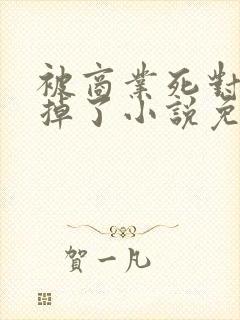 被商業死對
掉了小說免
賀一凡